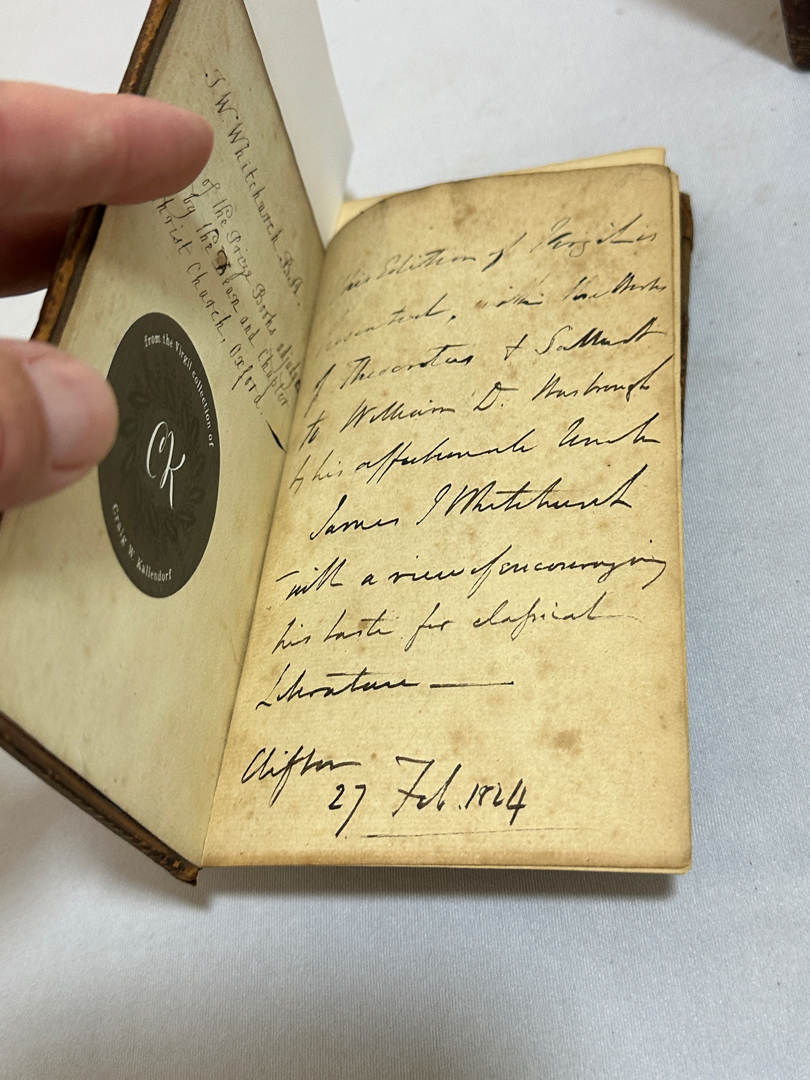 J. W. Whitchurch B.A.
of the Prize Books adjudged
by the Dean and Chapter
Christ Church, Oxford.
from the Virgil collection of
CK
Craig W Kallendorf
This Edition of Virgil is
presented, with the Works
of Theocritus & Sallust
to William D. Hasbrough
by his affectionate Uncle
James J Whitchurch
with a view of encouraging
his taste for classical
Literature —
Clifton
27 Feb. 1824